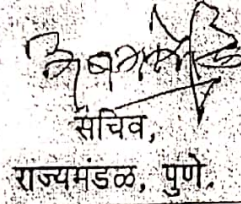 सचिव,
राज्यमंडळ, पुणे.